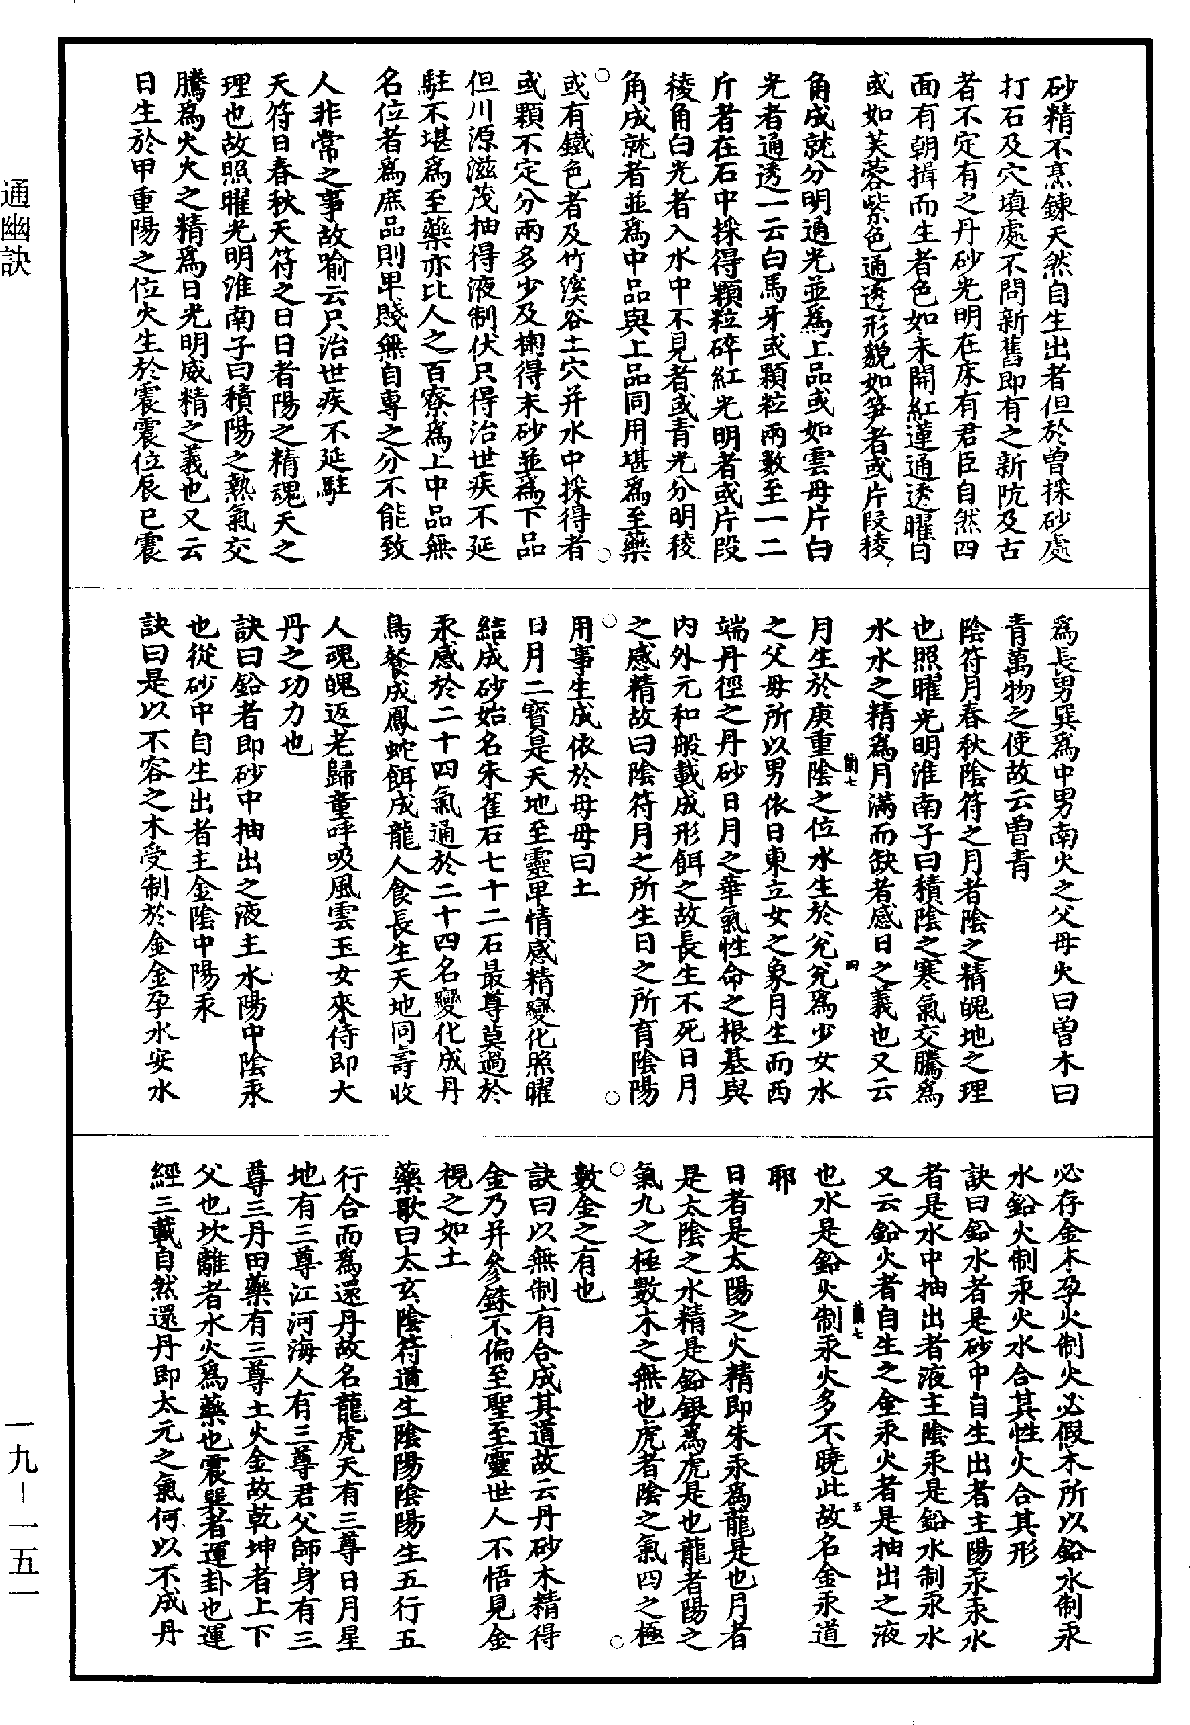 通幽訣
砂精不烹鍊天然自生出者但於曾採砂處
打石及穴填處不問新舊即有之新阬及古
者不定有之丹砂光明在床有君臣自然四
面有朝揖而生者色如未開紅蓮通透曜日
或如芙蓉紫色通透形貌如笋者或片段稜
角成就分明通光並爲上品或如雲母片白
光者通透一云白馬牙或顆粒兩數至一二
斤者在石中採得顆粒碎紅光明者或片段
稜角白光者入水中不見者或青光分明稜
角成就者並爲中品與上品同用堪爲至藥
或有鐵色者及竹溪谷土穴并水中採得者
或顆不定分兩多少及掬得末砂並爲下品
但川源滋茂抽得液制伏只得治世疾不延
駐不堪爲至藥亦比人之百寮爲上中品無
名位者爲庶品則卑賤無自專之分不能致
人非常之事故喻云只治世疾不延駐
天符日春秋天符之日日者陽之精魂天之
理也故照曜光明淮南子曰積陽之熱氣交
騰爲火火之精爲日光明威精之義也又云
日生於甲重陽之位火生於震震位辰巳震
爲長男巽爲中男南火之父母火曰曾木曰
青萬物之使故云曾青
陰符月春秋陰符之月者陰之精魄地之理
也照曜光明淮南子曰積陰之寒氣交騰爲
水水之精爲月滿而缺者感日之義也又云
月生於庚重陰之位水生於兊兊爲少女水
之父母所以男依日東立女之象月生而西
端丹徑之丹砂日月之華氣性命之根基與
内外元和般載成形餌之故長生不死日月
之感精故曰陰符月之所生日之所育陰陽
用事生成依於母母曰土
日月二寶是天地至靈卑情感精變化照曜
結成砂始名朱雀石七十二石最尊莫過於
汞感於二十四氣通於二十四名變化成丹
鳥餐成鳳蛇餌成龍人食長生天地同壽收
人魂魄返老歸童呼吸風雲玉女來侍即大
丹之功力也
訣曰鉛者即砂中抽出之液主水陽中陰汞
也從砂中自生出者主金陰中陽汞
訣曰是以不容之木受制於金金孕水安水
必存金木孕火制火必假木所以鉛水制汞
水鉛火制汞火水合其性火合其形
訣曰鉛水者是砂中自生出者主陽汞汞水
者是水中抽出者液主陰汞是鉛水制汞水
又云鉛火者自生之金汞火者是抽出之液
也水是鉛火制汞火多不曉此故名金汞道
耶
日者是太陽之火精即朱汞爲龍是也月者
是太陰之水精是鉛銀爲虎是也龍者陽之
氣九之極數木之無也虎者陰之氣四之極
數金之有也
訣曰以無制有合成其道故云丹砂木精得
金乃并參銖不偏至聖至靈世人不悟見金
視之如土
藥歌曰太玄陰符道生陰陽陰陽生五行五
行合而爲還丹故名龍虎天有三尊日月星
地有三尊江河海人有三尊君父師身有三
尊三丹田藥有三尊土火金故乾坤者上下
父也坎離者水火爲藥也震巽者運卦也運
經三載自然還丹即太元之氣何以不成丹
一九－一五一